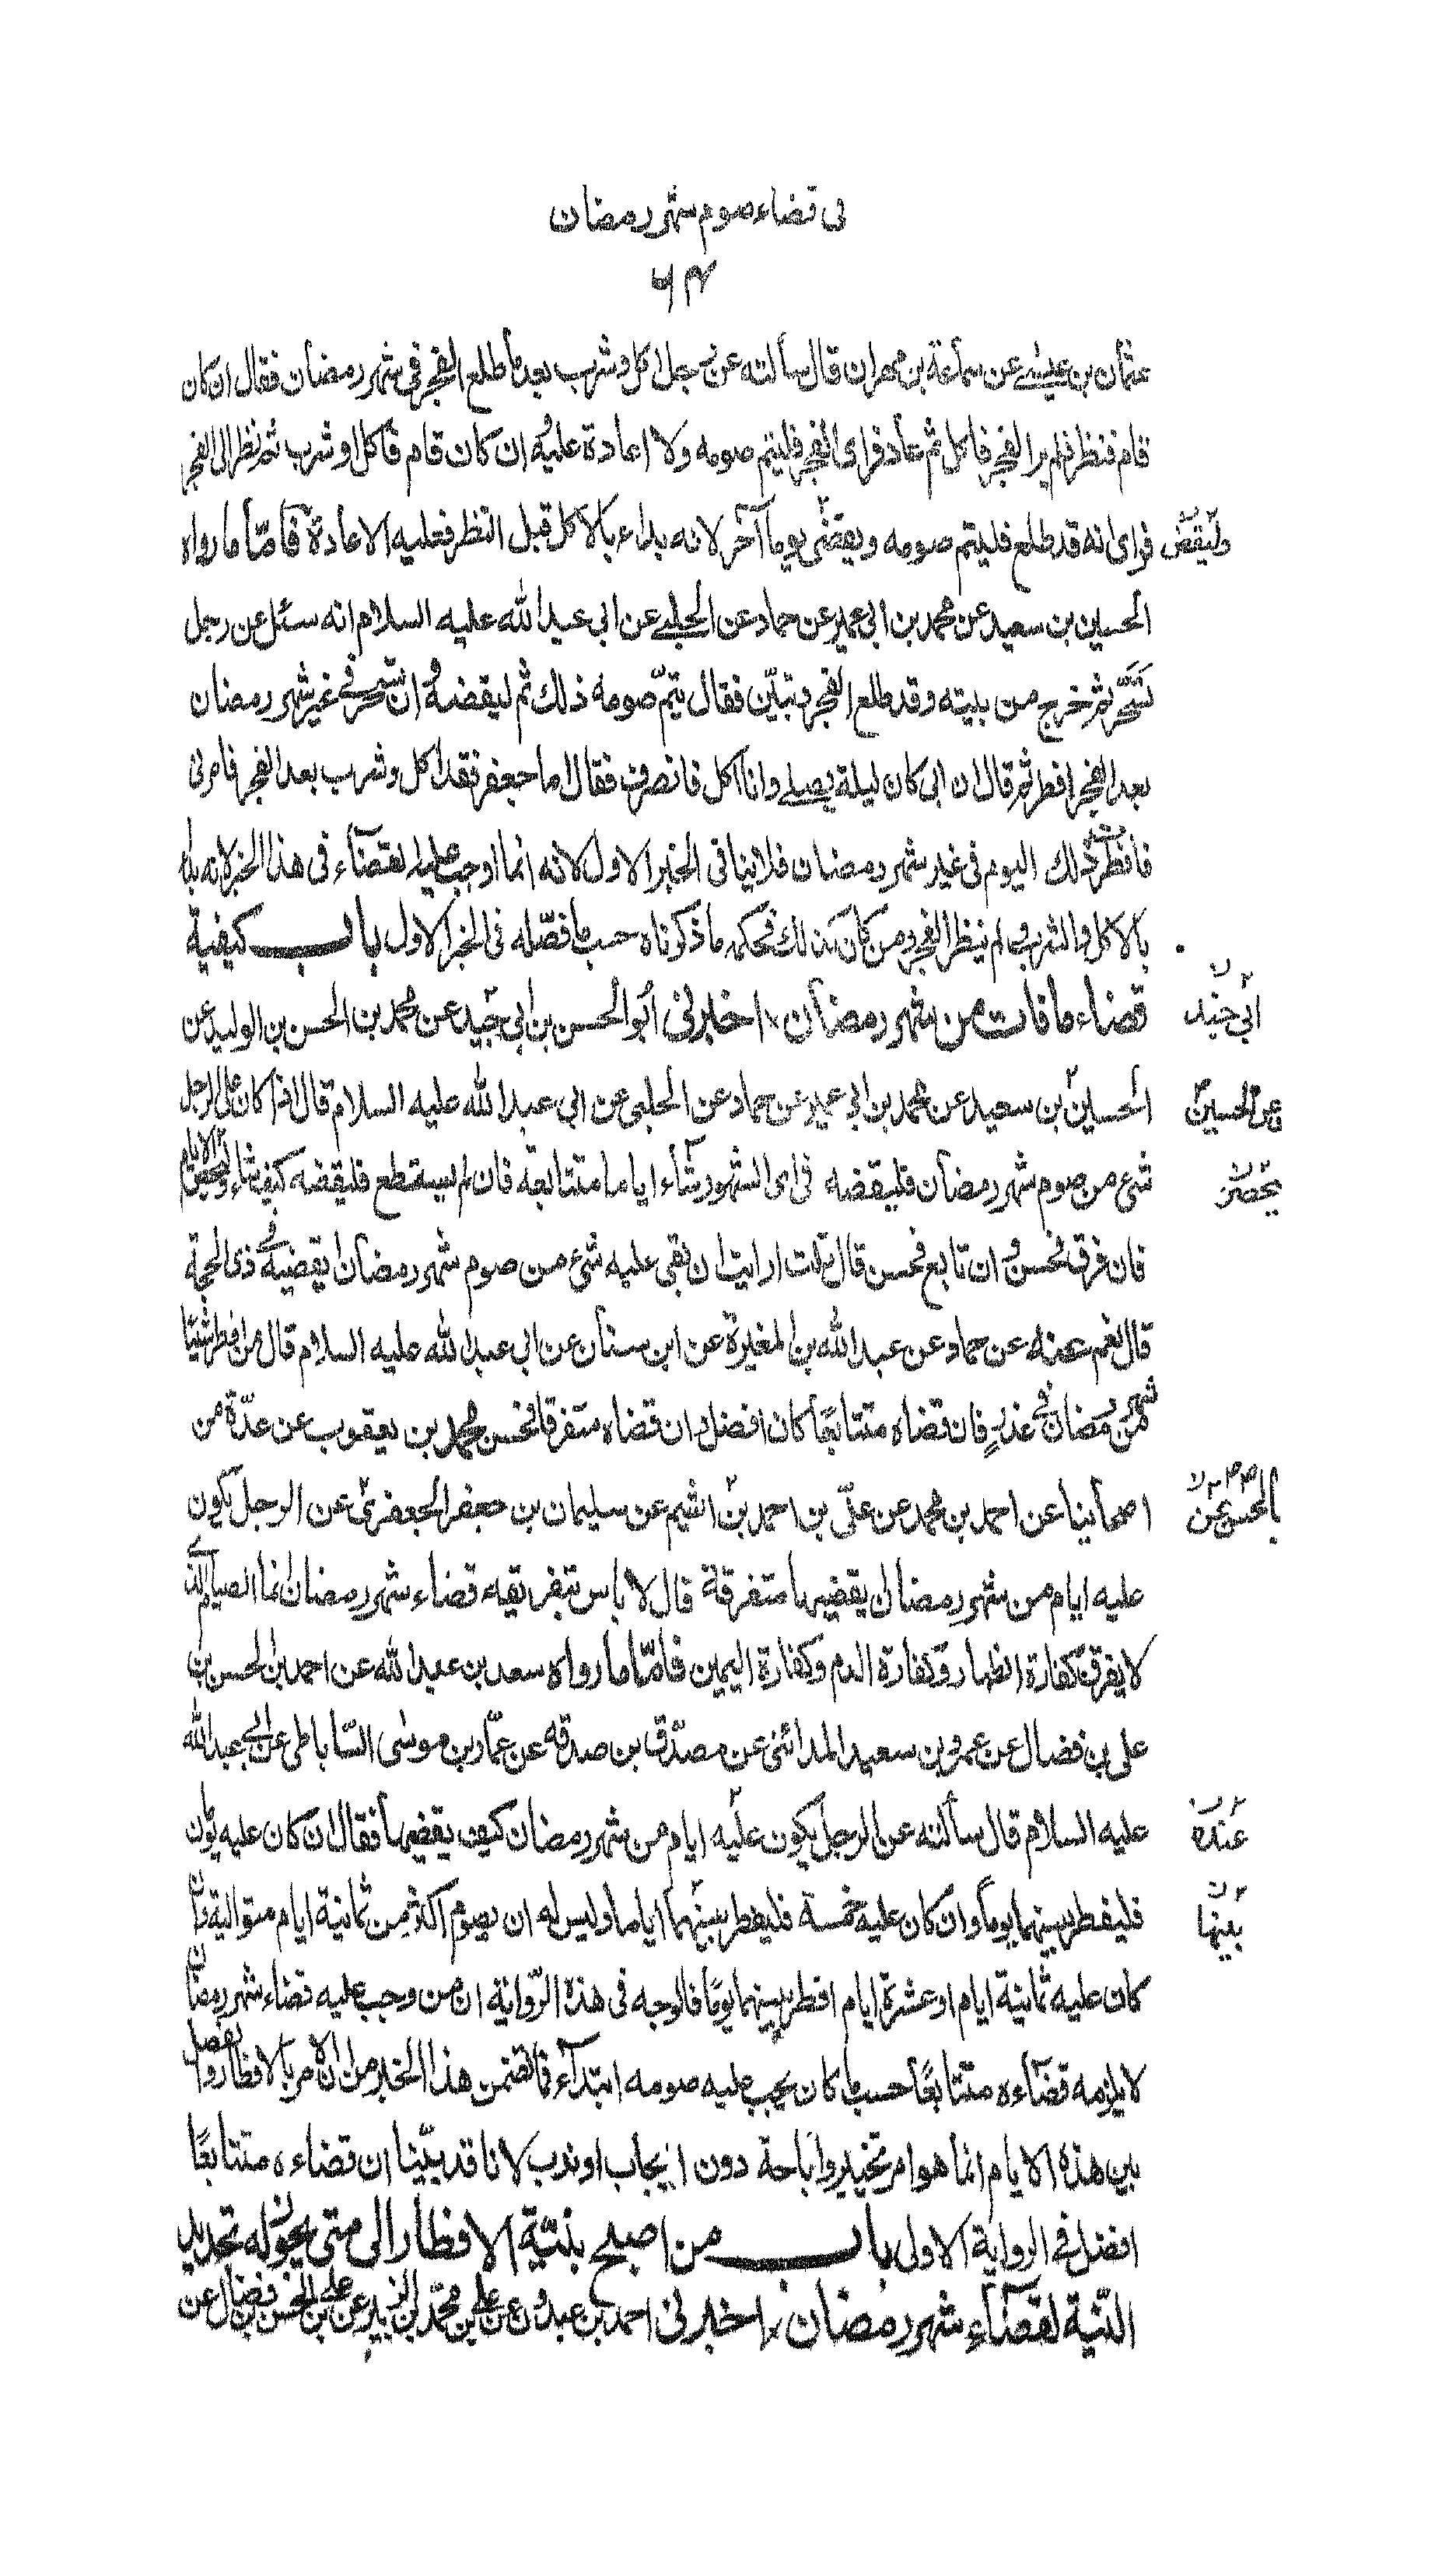 فى قضاء صوم شهر رمضان
٦٣
عثمان بن عيسى عن سماعة بن مهران قال سألته عن رجل اكل وشرب بعد ما طلع الفجر فى شهر رمضان فقال ان كان
قام فنظر فلم ير الفجر فاكل ثم عاد فراى الفجر فليتم صومه ولا اعادة عليه وان كان قام فاكل وشرب ثم نظر الى الفجر
وليقض
فراى انه قد طلع فليتم صومه ويقضى يوما آخر لانه بدء بالاكل قبل النظر فعليه الاعادة فأمّا ما رواه
الحسين بن سعيد عن محمد بن ابى عمير عن حماد عن الحلبى عن ابى عبد الله عليه السلام انه سئل عن رجل
تسحّر ثم خرج من بيته وقد طلع الفجر وتبيّن فقال يتمّ صومه ذلك ثم ليقضه وان تسحر فى غير شهر رمضان
بعد الفجر افطر ثم قال ان ابى كان ليلة يصلى وانا آكل فانصرف فقال اما جعفر فقد اكل وشرب بعد الفجر فامرنى
فافطرت ذلك اليوم فى غير شهر رمضان فلا ينافى الخبر الاول لانه انما اوجب عليه القضاء فى هذا الخبر لانه بدء
بالاكل والشرب ولم ينظر الفجر ومن كان كذلك فحكمه ما ذكرناه حسب ما فصّله فى الخبر الاول باب كيفية
قضاء ما فات من شهر رمضان اخبرنى ابو الحسن بن ابى جيد عن محمد بن الحسن بن الوليد عن
ابى جيد
الحسين بن سعيد عن محمد بن ابى عمير عن حماد عن الحلبى عن ابى عبد الله عليه السلام قال اذا كان على الرجل
عن الحسين
شىء من صوم شهر رمضان فليقضه فى اى الشهور شاء اياما متتابعة فان لم يستطع فليقضه كيف شاء وليحص الايام
فان فرق فحسن وان تابع فحسن قال قلت ارايت ان بقى عليه شىء من صوم شهر رمضان ايقضيه فى ذى الحجة
قال نعم عنه عن حماد عن عبد الله بن المغيرة عن ابن سنان عن ابى عبد الله عليه السلام قال من افطر شيئا
من شهر رمضان فى عذر فان قضاه متتابعا كان افضل وان قضاه متفرقا فحسن محمد بن يعقوب عن عدّة من
اصحابنا عن احمد بن محمد عن علىّ بن احمد بن اشيم عن سليمان بن جعفر الجعفرى عن الرجل يكون
عليه ايام من شهر رمضان ايقضيها متفرقة قال لا باس بتفريقه قضاء شهر رمضان انما الصيام الذى
لا يفرق كفارة الظهار وكفارة الدم وكفارة اليمين فامّا ما رواه سعد بن عبد الله عن احمد بن الحسن بن
على بن فضال عن عمرو بن سعيد المدائنى عن مصدّق بن صدقه عن عمّار بن موسى السّاباطى عن ابى عبد الله
عليه السلام قال سألته عن الرجل يكون عليه ايام من شهر رمضان كيف يقضيها فقال ان كان عليه يومان
عنده
فليفطر بينهما يوما وان كان عليه خمسة فليفطر بينهما اياما وليس له ان يصوم اكثر من ثمانية ايام متوالية وان
بينها
كان عليه ثمانية ايام او عشرة ايام افطر بينهما يومًا فالوجه فى هذه الرّواية ان من وجب عليه قضاء شهر رمضان
لا يلزمه قضاءه متتابعًا حسب ما كان يجب عليه صومه ابتداء فما تضمن هذا الخبر من ان الامر بالافطار والفصل
بين هذه الايام انما هو امر تخيير واباحة دون ايجاب او ندب لانا قد بيّنا ان قضاءه متتابعًا
افضل فى الرواية الاولى باب من اصبح بنيّة الافطار الى متى يجوز له تجديد
النّية لقضاء شهر رمضان اخبرنى احمد بن عبدون عن على بن محمّد بن الزبير عن على بن الحسن بن فضال عن